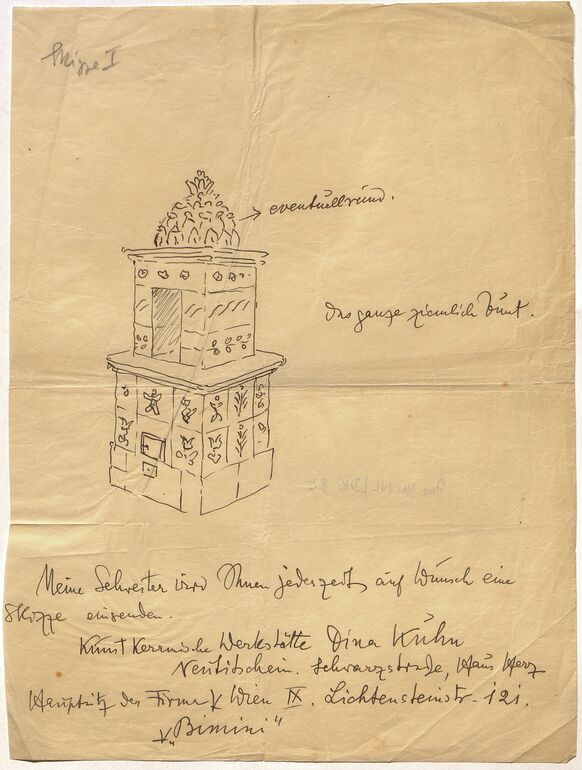 Skizze I
eventuell rund.
das ganze ziemlich bunt.
Meine Schwester wird Ihnen jederzeit auf Wunsch eine
Skizze einsenden.
Kunst Keramische Werkstätte Dina Kuhn
Neutitschein. Schwarzstraße, Haus Herz
Hauptsitz der Firma Wien IX. Lichtensteinstr. 121.
"Bimini"